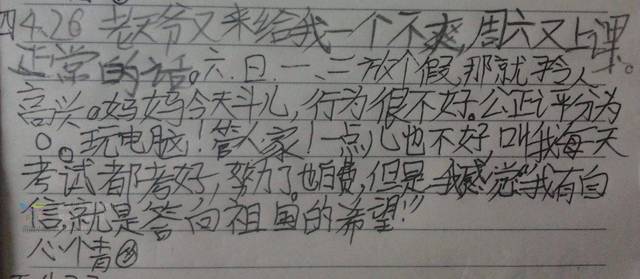 四4.26 老天爷又来给我一个不爽,周六又上课。
正常的话。六.日.一.二放个假那就令人
高兴。妈妈今天斗儿,行为很不好。公正评分为
0。玩电脑!管人家!一点儿也不好,叫我每天
考试都考好,努力了也白费,但是我感觉“我有自
信,就是答向祖国的希望!”
心情